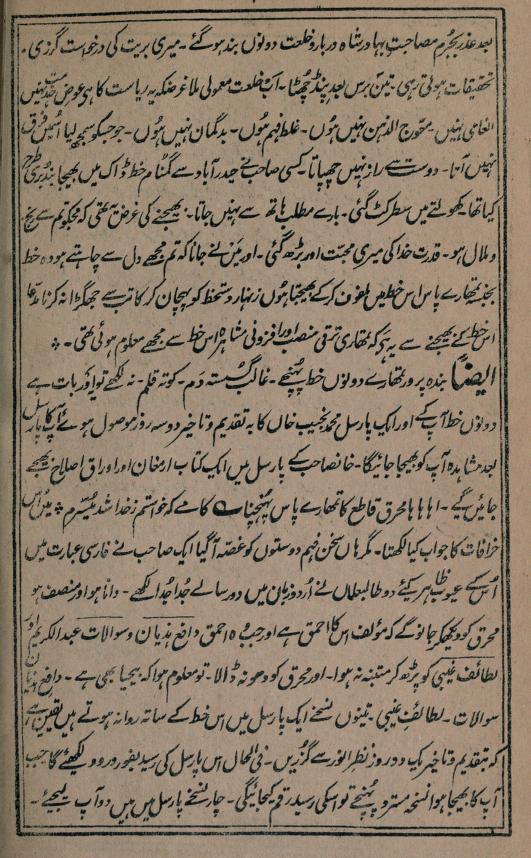 بعد غدر بجرم مصاحبت بہادر شاہ دربار و خلعت دونوں بند ہوگئے۔ میری بریت کی درخواست گزری۔
تحقیقات ہوتی رہی۔ تین برس بعد پنڈ چھٹا۔ اب خلعت معمولی ملا غرضکہ یہ ریاست کا ہی عوض خدمت نہیں
انعامی نہیں۔ معوج الذہن نہیں ہوں۔ غلط فہم ہوں۔ بدگمان نہیں ہوں۔ جو جسکو سمجھ لیا اسمیں فرق
نہیں آتا۔ دوست سے راز نہیں چھپاتا۔ کسی صاحب نے حیدرآباد سے گمنام خط ڈاک میں بھیجا بند بری طرح
کیا تھا۔ کھولنے میں سطر کٹ گئی۔ بارے مطلب ہاتھ سے نہیں جاتا۔ بھیجنے کی غرض یہ تھی کہ مجکو تم سے رنج
و ملال ہو۔ قدرت خدا کی میری محبت اور بڑھ گئی۔ اور مین نے جانا کہ تم مجھے دل سے چاہتے ہو وہ خط
بجنسہ تمھارے پاس اس خط میں ملفوف کرکے بھیجتا ہوں زنہار دستخط کو پہچان کر کاتب سے جھگڑا نہ کرنا مدعا
اس خط کے بھیجنے سے یہ ہی کہ تمھاری ترقی منصب اور افزونی مشاہرہ اس خط سے مجھے معلوم ہوئی تھی۔
ایضاً بندہ پرور تمھارے دونوں خط پہنچے۔ غالب گسستہ دم۔ کوتہ قلم۔ نہ لکھے تو اور بات ہے
دونوں خط آپ کے اور ایک پارسل محمد نجیب خاں کا بہ تقدیم و تاخیر دو سہ روز موصول ہوئے آپکا پارسل
بعد مشاہدہ آپ کو بھیجا جائیگا۔ خانصاحب کے پارسل میں ایک کتاب ارمغان اور اوراق اصلاح بھیجے
جائیں گے۔ اہاہاہا محرق قاطع کا تمھارے پاس پہنچنا کامے کہ خواستم ز خدا شد میسرم میں اس
خرافات کا جواب کیا لکھتا۔ مگر ہاں سخن فہم دوستوں کو غصہ آگیا ایک صاحب نے فارسی عبارت میں
اُس کے عیوب ظاہر کیے دو طالبعلموں نے اُردو زبان میں دو رسالے جدا جدا لکھے۔ دانا ہو اور منصف ہو
محرق کو دیکھکر جانوگے کہ مؤلف اس کا احمق ہے اور جب وہ احمق دافع ہذیان و سوالات عبدالکریم اور
لطائف غیبی کو پڑھ کر متنبہ نہ ہوا۔ اور محرق کو دھو نہ ڈالا۔ تو معلوم ہوا کہ بیحیا بھی ہے۔ دافع ہذیان
سوالات۔ لطائف غیبی۔ تینوں نسخے ایک پارسل میں اس خط کے ساتہ روانہ ہوتے ہیں یقین ہے
کہ بتقدیم و تاخیر یک و دو روز نظر انور سے گزریں۔ فی الحال اس پارسل کی رسید بفور ورود لکھئے گا جب
آپ کا بھیجا ہوا نسخہ مسترد پہنچے تو اسکی رسید رقم کیجائیگی۔ چار نسخے پارسل میں ہیں دو آپ لیجیے۔